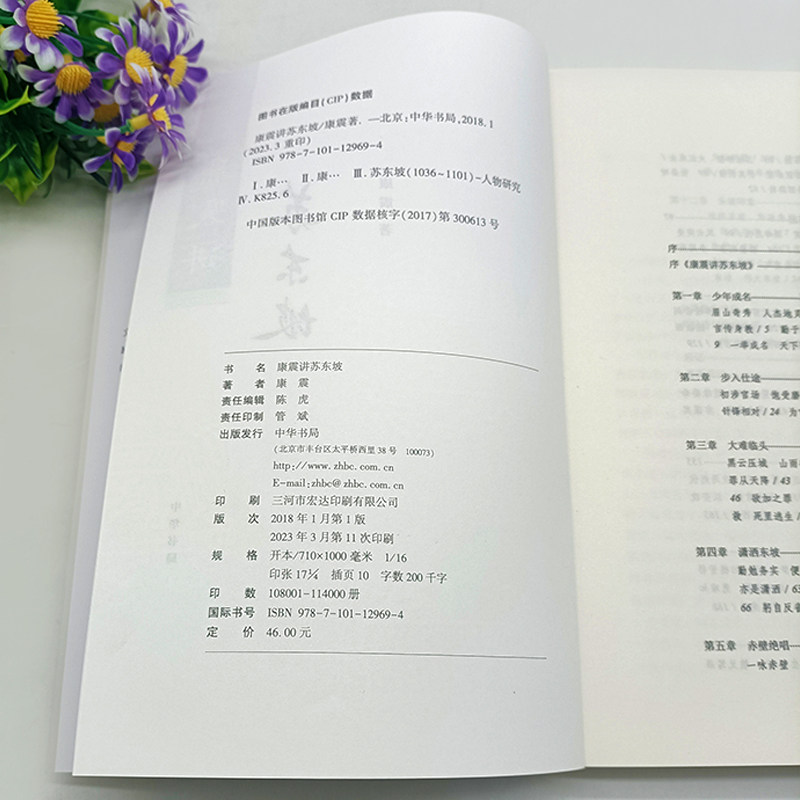 图书在版编目(CIP)数据
康震讲苏东坡/康震著. —北京:中华书局,2018.1
(2023.3 重印)
ISBN 978-7-101-12969-4
Ⅰ.康… Ⅱ.康… Ⅲ.苏东坡(1036~1101)-人物研究
Ⅳ.K825.6
中国版本图书馆 CIP 数据核字(2017)第 300613 号
书 名 康震讲苏东坡
著 者 康 震
责任编辑 陈 虎
责任印制 管 斌
出版发行 中华书局
(北京市丰台区太平桥西里 38 号 100073)
http://www.zhbc.com.cn
E-mail:zhbc@zhbc.com.cn
印 刷 三河市宏达印刷有限公司
版 次 2018 年 1 月第 1 版
2023 年 3 月第 11 次印刷
规 格 开本/710×1000 毫米 1/16
印张 17¼ 插页 10 字数 200 千字
印 数 108001-114000 册
国际书号 ISBN 978-7-101-12969-4
定 价 46.00 元
序
序《康震讲苏东坡》
第一章 少年成名
眉山奇秀 人杰地
言传身教/5 勤于
9 一举成名 天下
第二章 步入仕途
初涉官场 饱受
针锋相对/24 为
第三章 大难临头
黑云压城 山雨
罪从天降/43
46 欲加之罪
救 死里逃生/
第四章 潇洒东坡
勤勉务实 便
亦是潇洒/63
66 躬自反省
第五章 赤壁绝唱
一咏赤壁